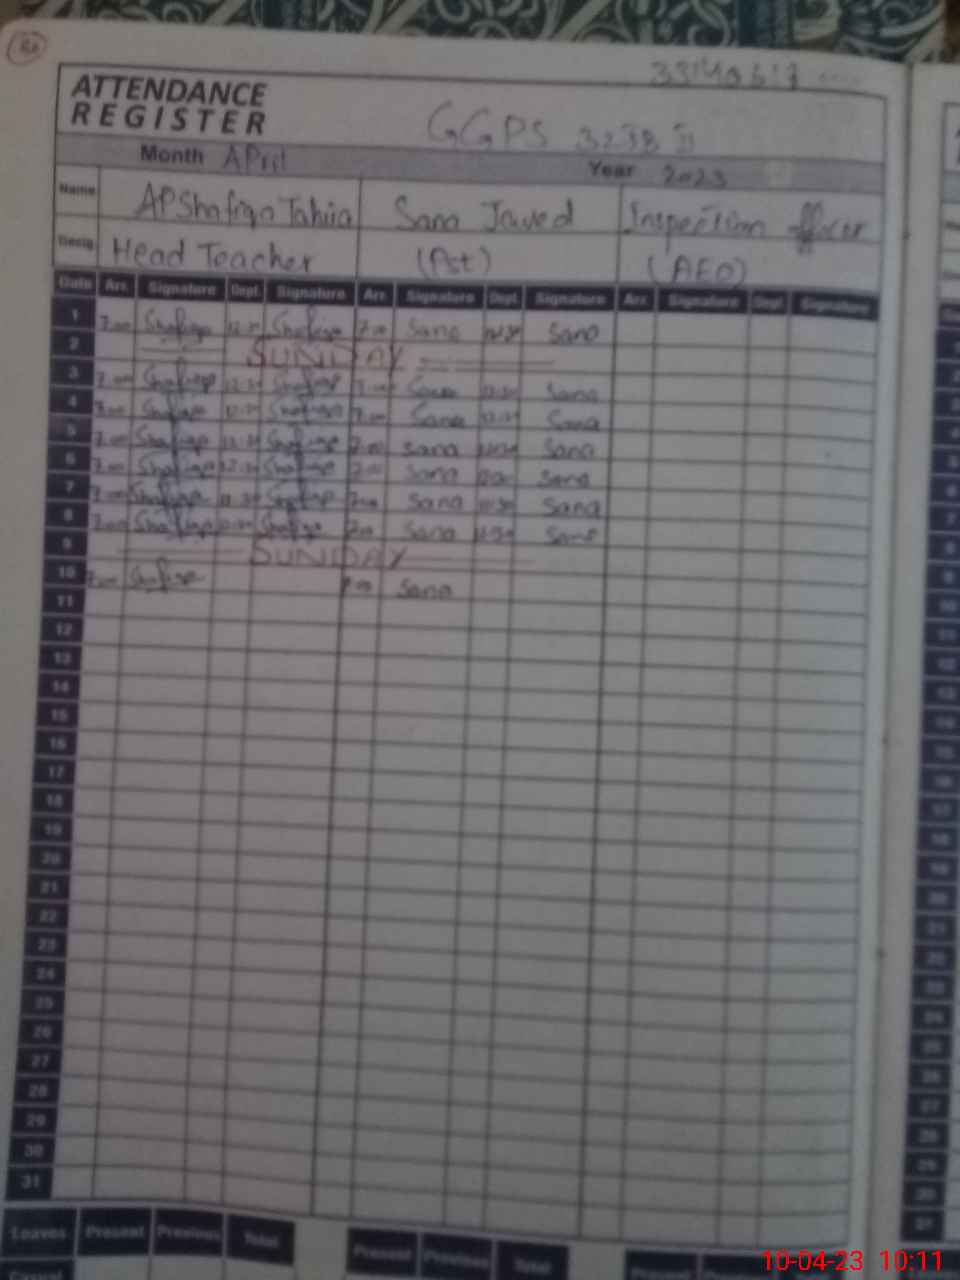 ATTENDANCE
REGISTER
GGPS
Month April Year 2023
Name Sana Javed Inspection officer
Desig. Head Teacher (Pst) (AEO)
Date Arr. Signature Dept. Signature Arr. Signature Dept. Signature Arr. Signature Dept. Signature
1 7:00 Shafiqa Shafiqa 7:00 Sana Sana
2 SUNDAY
3 7:00 Shafiqa 12:30 Shafiqa 7:00 Sana 12:30 Sana
4 7:00 Shafiqa 12:30 Shafiqa 7:00 Sana 12:30 Sana
5 7:00 Shafiqa 12:30 Shafiqa 7:00 Sana Sana
6 7:00 Shafiqa 12:30 Shafiqa 7:00 Sana Sana
7 7:00 Shafiqa Shafiqa 7:00 Sana Sana
8 7:00 Shafiqa Shafiqa 7:00 Sana Sana
9 SUNDAY
10 7:00 Shafiqa 7:00 Sana
11
12
13
14
15
16
17
18
19
20
21
22
23
24
25
26
27
28
29
30
31
Leaves Present Previous Total Present Previous Total Present Previous
Casual
10-04-23 10:11